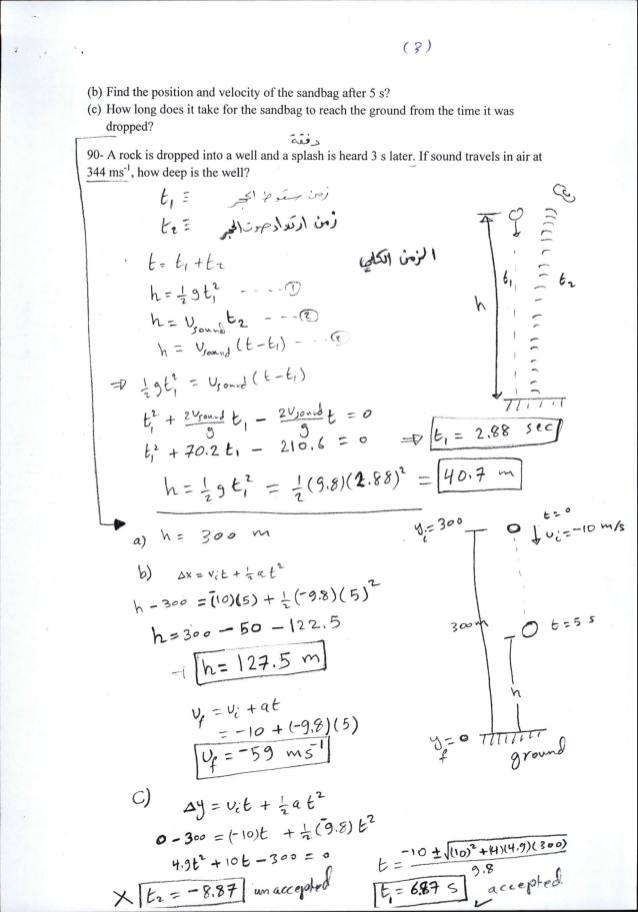 (3)
(b) Find the position and velocity of the sandbag after 5 s?
(c) How long does it take for the sandbag to reach the ground from the time it was
dropped?
90- A rock is dropped into a well and a splash is heard 3 s later. If sound travels in air at
344 ms⁻¹, how deep is the well?
t₁ ≡ زمن سقوط الحجر
t₂ ≡ زمن ارتداد صوت الحجر
t = t₁ + t₂ الزمن الكلي
h = ½ g t₁² ---- ①
h = v_sound t₂ --- ②
h = v_sound (t - t₁) ---
⇒ ½ g t₁² = v_sound (t - t₁)
t₁² + 2v_sound/g t₁ - 2v_sound/g t = 0
t₁² + 70.2 t₁ - 210.6 = 0 ⇒ t₁ = 2.88 sec
h = ½ g t₁² = ½ (9.8)(2.88)² = 40.7 m
h
t₁
t₂
a) h = 300 m
b) Δx = vᵢt + ½ at²
h - 300 = (-10)(5) + ½ (-9.8)(5)²
h = 300 - 50 - 122.5
h = 127.5 m
v_f = vᵢ + at
= -10 + (-9.8)(5)
v_f = -59 ms⁻¹
yᵢ = 300
t = 0
vᵢ = -10 m/s
300m
t = 5 s
h
y_f = 0
ground
c) Δy = vᵢt + ½ at²
0 - 300 = (-10)t + ½ (-9.8) t²
4.9t² + 10t - 300 = 0
X t₂ = -8.87 unaccepted
t = -10 ± √((10)² + (4)(4.9)(300)) / 9.8
t₁ = 6.87 s accepted